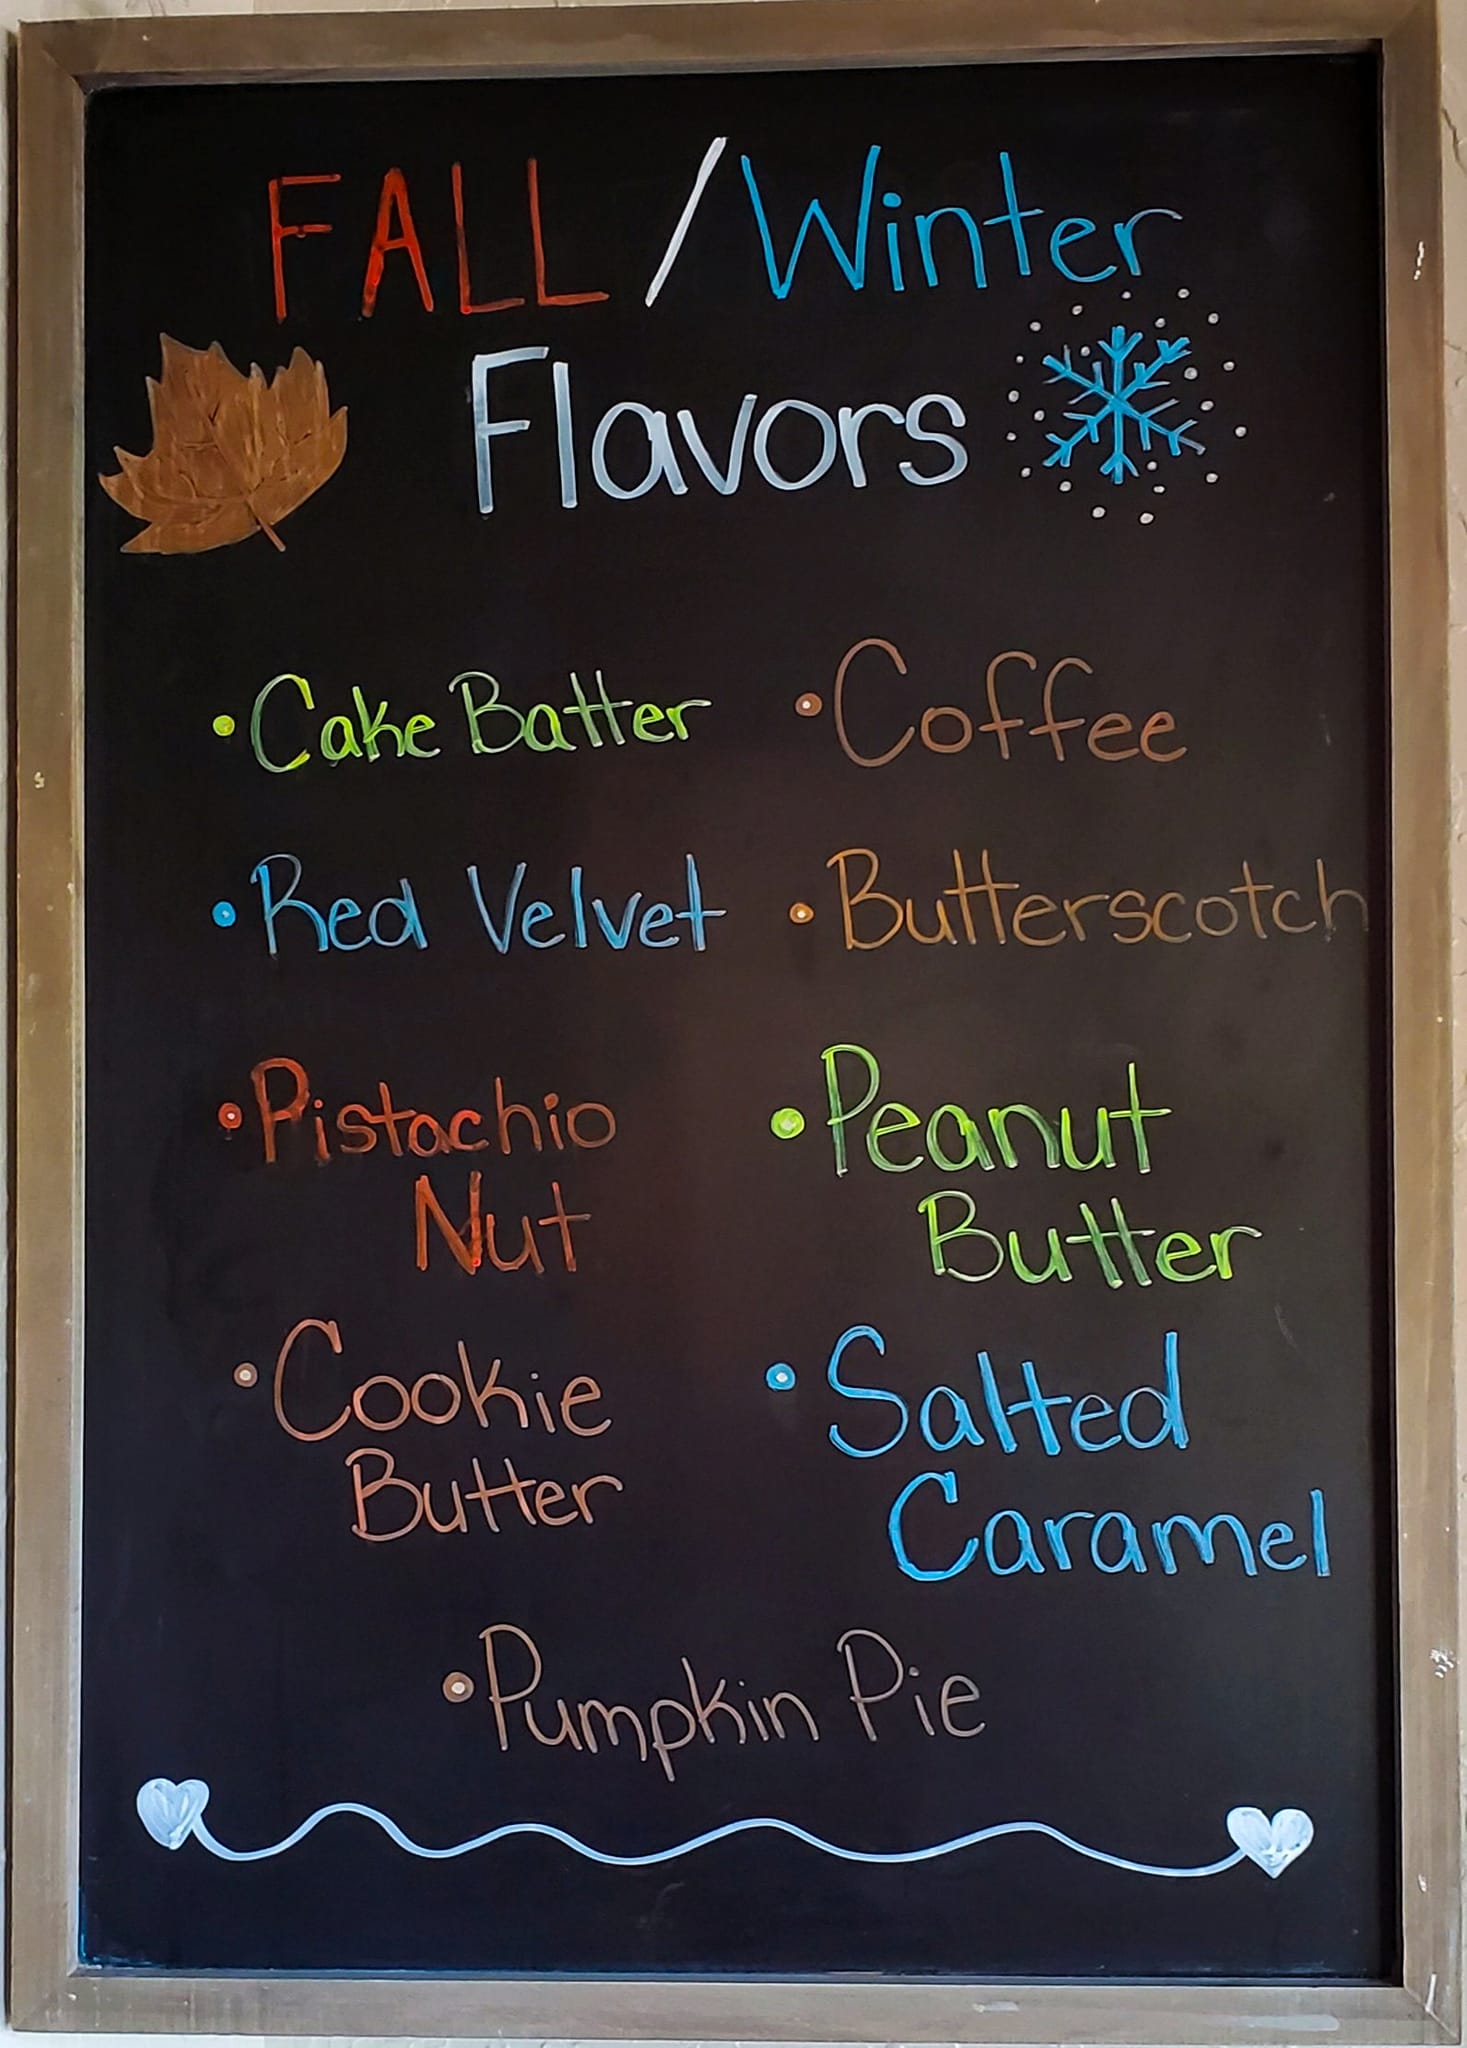 FALL / Winter
Flavors
• Cake Batter
• Coffee
• Red Velvet
• Butterscotch
• Pistachio
Nut
• Peanut
Butter
• Cookie
Butter
• Salted
Caramel
• Pumpkin Pie